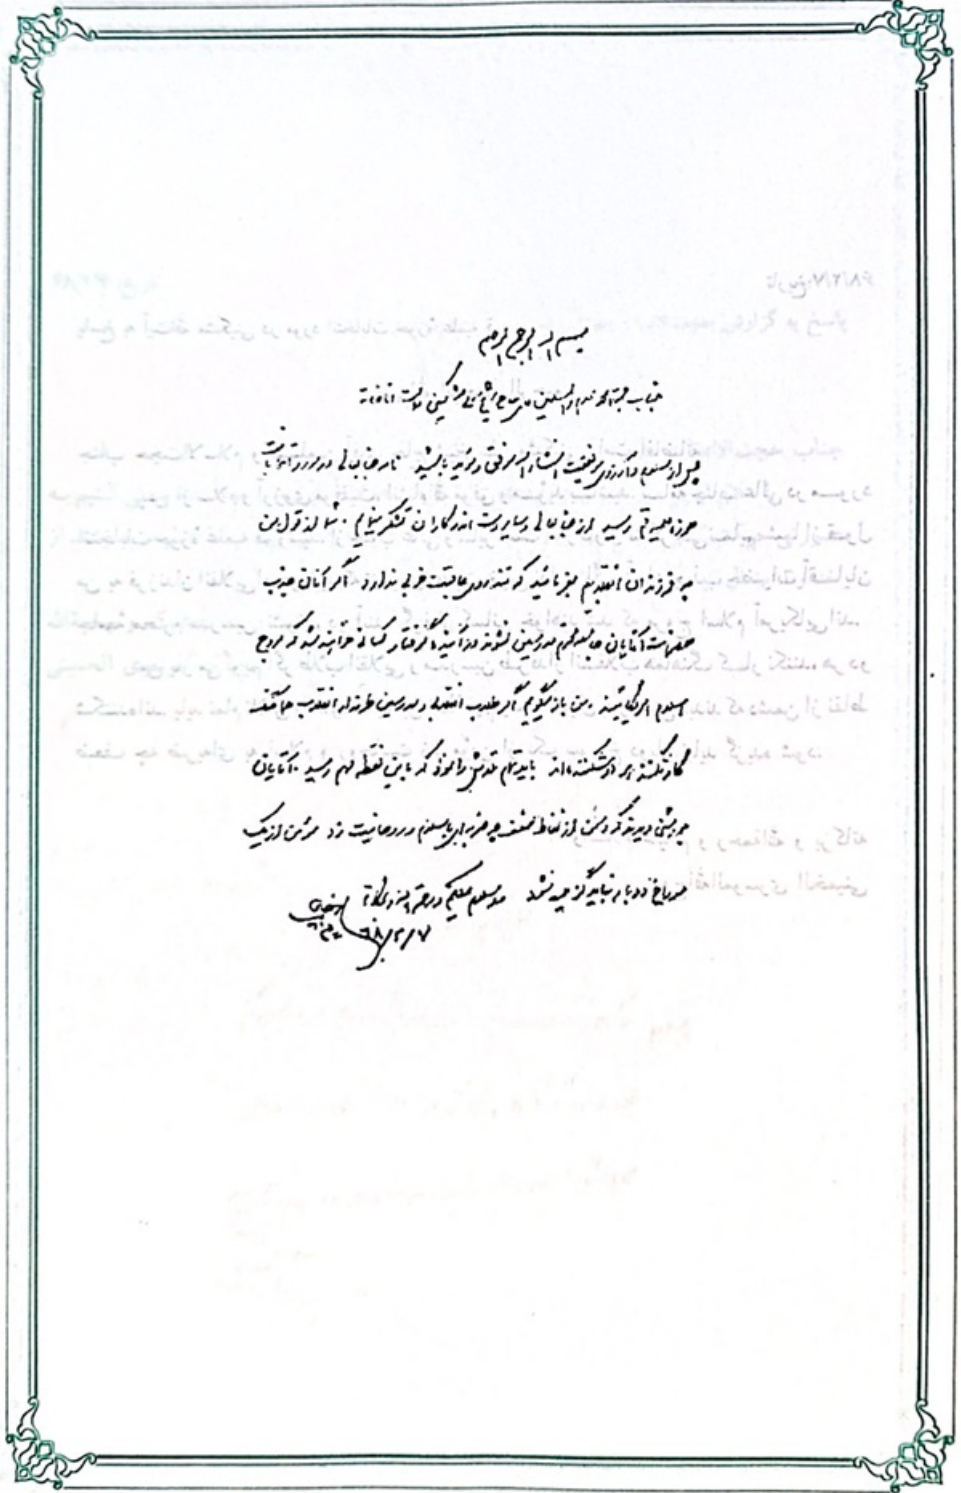 بسم الله الرحمن الرحیم
جناب حجة الاسلام والمسلمین آقای حاج شیخ علی مشکینی دامت افاضاته
پس از سلام و آرزوی موفقیت انشاءالله موفق و مؤید باشید. نامه جنابعالی در مورد انتخابات
حوزه علمیه قم رسید از جنابعالی و سایر دست اندرکاران تشکر مینمایم. شما از قول من
به فرزندان انقلابیم بفرمائید که تندروی عاقبت خوبی ندارد. اگر آنان جذب
حضرات آقایان جامعه محترم مدرسین نشوند در آینده گرفتار کسانی خواهند شد که مروج
اسلام امریکایی‌اند. من باز میگویم اگر طلاب انقلابی و مدرسین طرفدار انقلاب هماهنگ
کار نکنند هر دو شکست‌خورده‌اند باید تمام تلاش را نمود که به این نقطه مهم رسید. آقایان
همه میدیدند که دشمن از نقاط ضعف چه ضربه‌ای به اسلام و روحانیت زد مؤمن از یک
سوراخ دوبار نباید گزیده شود والسلام علیکم و رحمة الله و برکاته
۶۸/۲/۷
روح الله الموسوی الخمینی